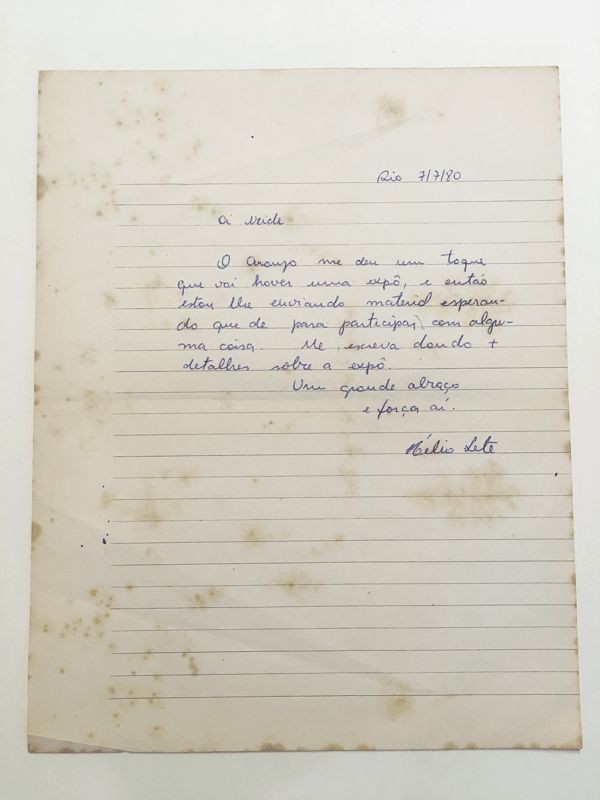 Rio 7/7/80
Oi Neide
O Araujo me deu um toque
que vai haver uma expô, e então
estou lhe enviando material esperan-
do que dê para participar com algu-
ma coisa. Me escreva dando +
detalhes sobre a expô.
Um grande abraço
e força aí.
Hélio Lete